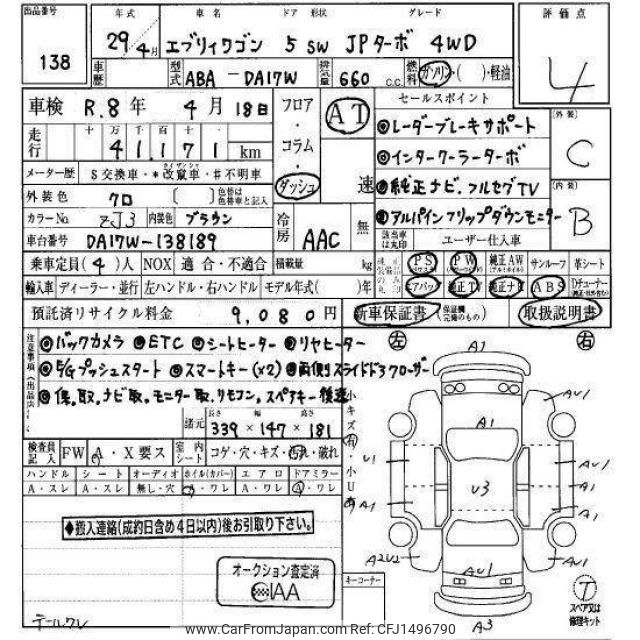 出品番号 年式 車名 ドア 形状 グレード 評価点
138 29年4月 エブリィワゴン 5 SW JPターボ 4WD 4
車歴 型式 ABA-DA17W 排気量 660 c.c. 燃料 ガソリン・( )・軽油
車検 R.8年 4月 18日 フロア・コラム・ダッシュ AT 速 セールスポイント 外装 C
走行 十 万 千 百 十 一 41,171 km
◎レーダーブレーキサポート
◎インタークーラーターボ
メーター歴 $交換車・*改竄車・#不明車
◎純正ナビ.フルセグTV 内装 B
外装色 クロ 〔 〕 色替は色替車と記入 冷房 AAC 無
◎アルパインフリップダウンモニター
カラーNo. ZJ3 内装色 ブラウン
該当車は丸印 ユーザー仕入車
車台番号 DA17W-138189
乗車定員(4)人 NOX 適合・不適合 積載量 kg PS PW 純正AW サンルーフ 革シート
輸入車 ディーラー・並行 左ハンドル・右ハンドル モデル年式( )年 エアバッグ 純正TV 純正ナビ ABS Dチューナー
預託済リサイクル料金 9,080円 新車保証書 (保証欄完備のもの) 取扱説明書
注意事項
◎バックカメラ ◎ETC ◎シートヒーター ◎リヤヒーター
◎E/Gプッシュスタート ◎スマートキー(×2) ◎両側スライドドアクローザー
◎保.取.ナビ取.モニター取.リモコン.スペアキー後送
諸元 長さ 339 × 幅 147 × 高さ 181
検査員記入 FW A・X要ス 室内シート コゲ・穴・キズ・汚れ・破れ
ハンドル シート オーディオ ホイル(カバー) エアロ ドアミラー
A・スレ A・スレ 無し・穴 A・ワレ A・ワレ A・ワレ
◆搬入連絡(成約日含め4日以内)後お引取り下さい。
オークション査定済
AA
テールワレ
小キズ有・小U有
左 右
A1
A1
AU1
U1
U3
AU1
A1
A1
A1
A2U2
AU1
AU1
A3
キーコーナー
T
スペア又は修理キット
www.CarFromJapan.com Ref:CFJ1496790